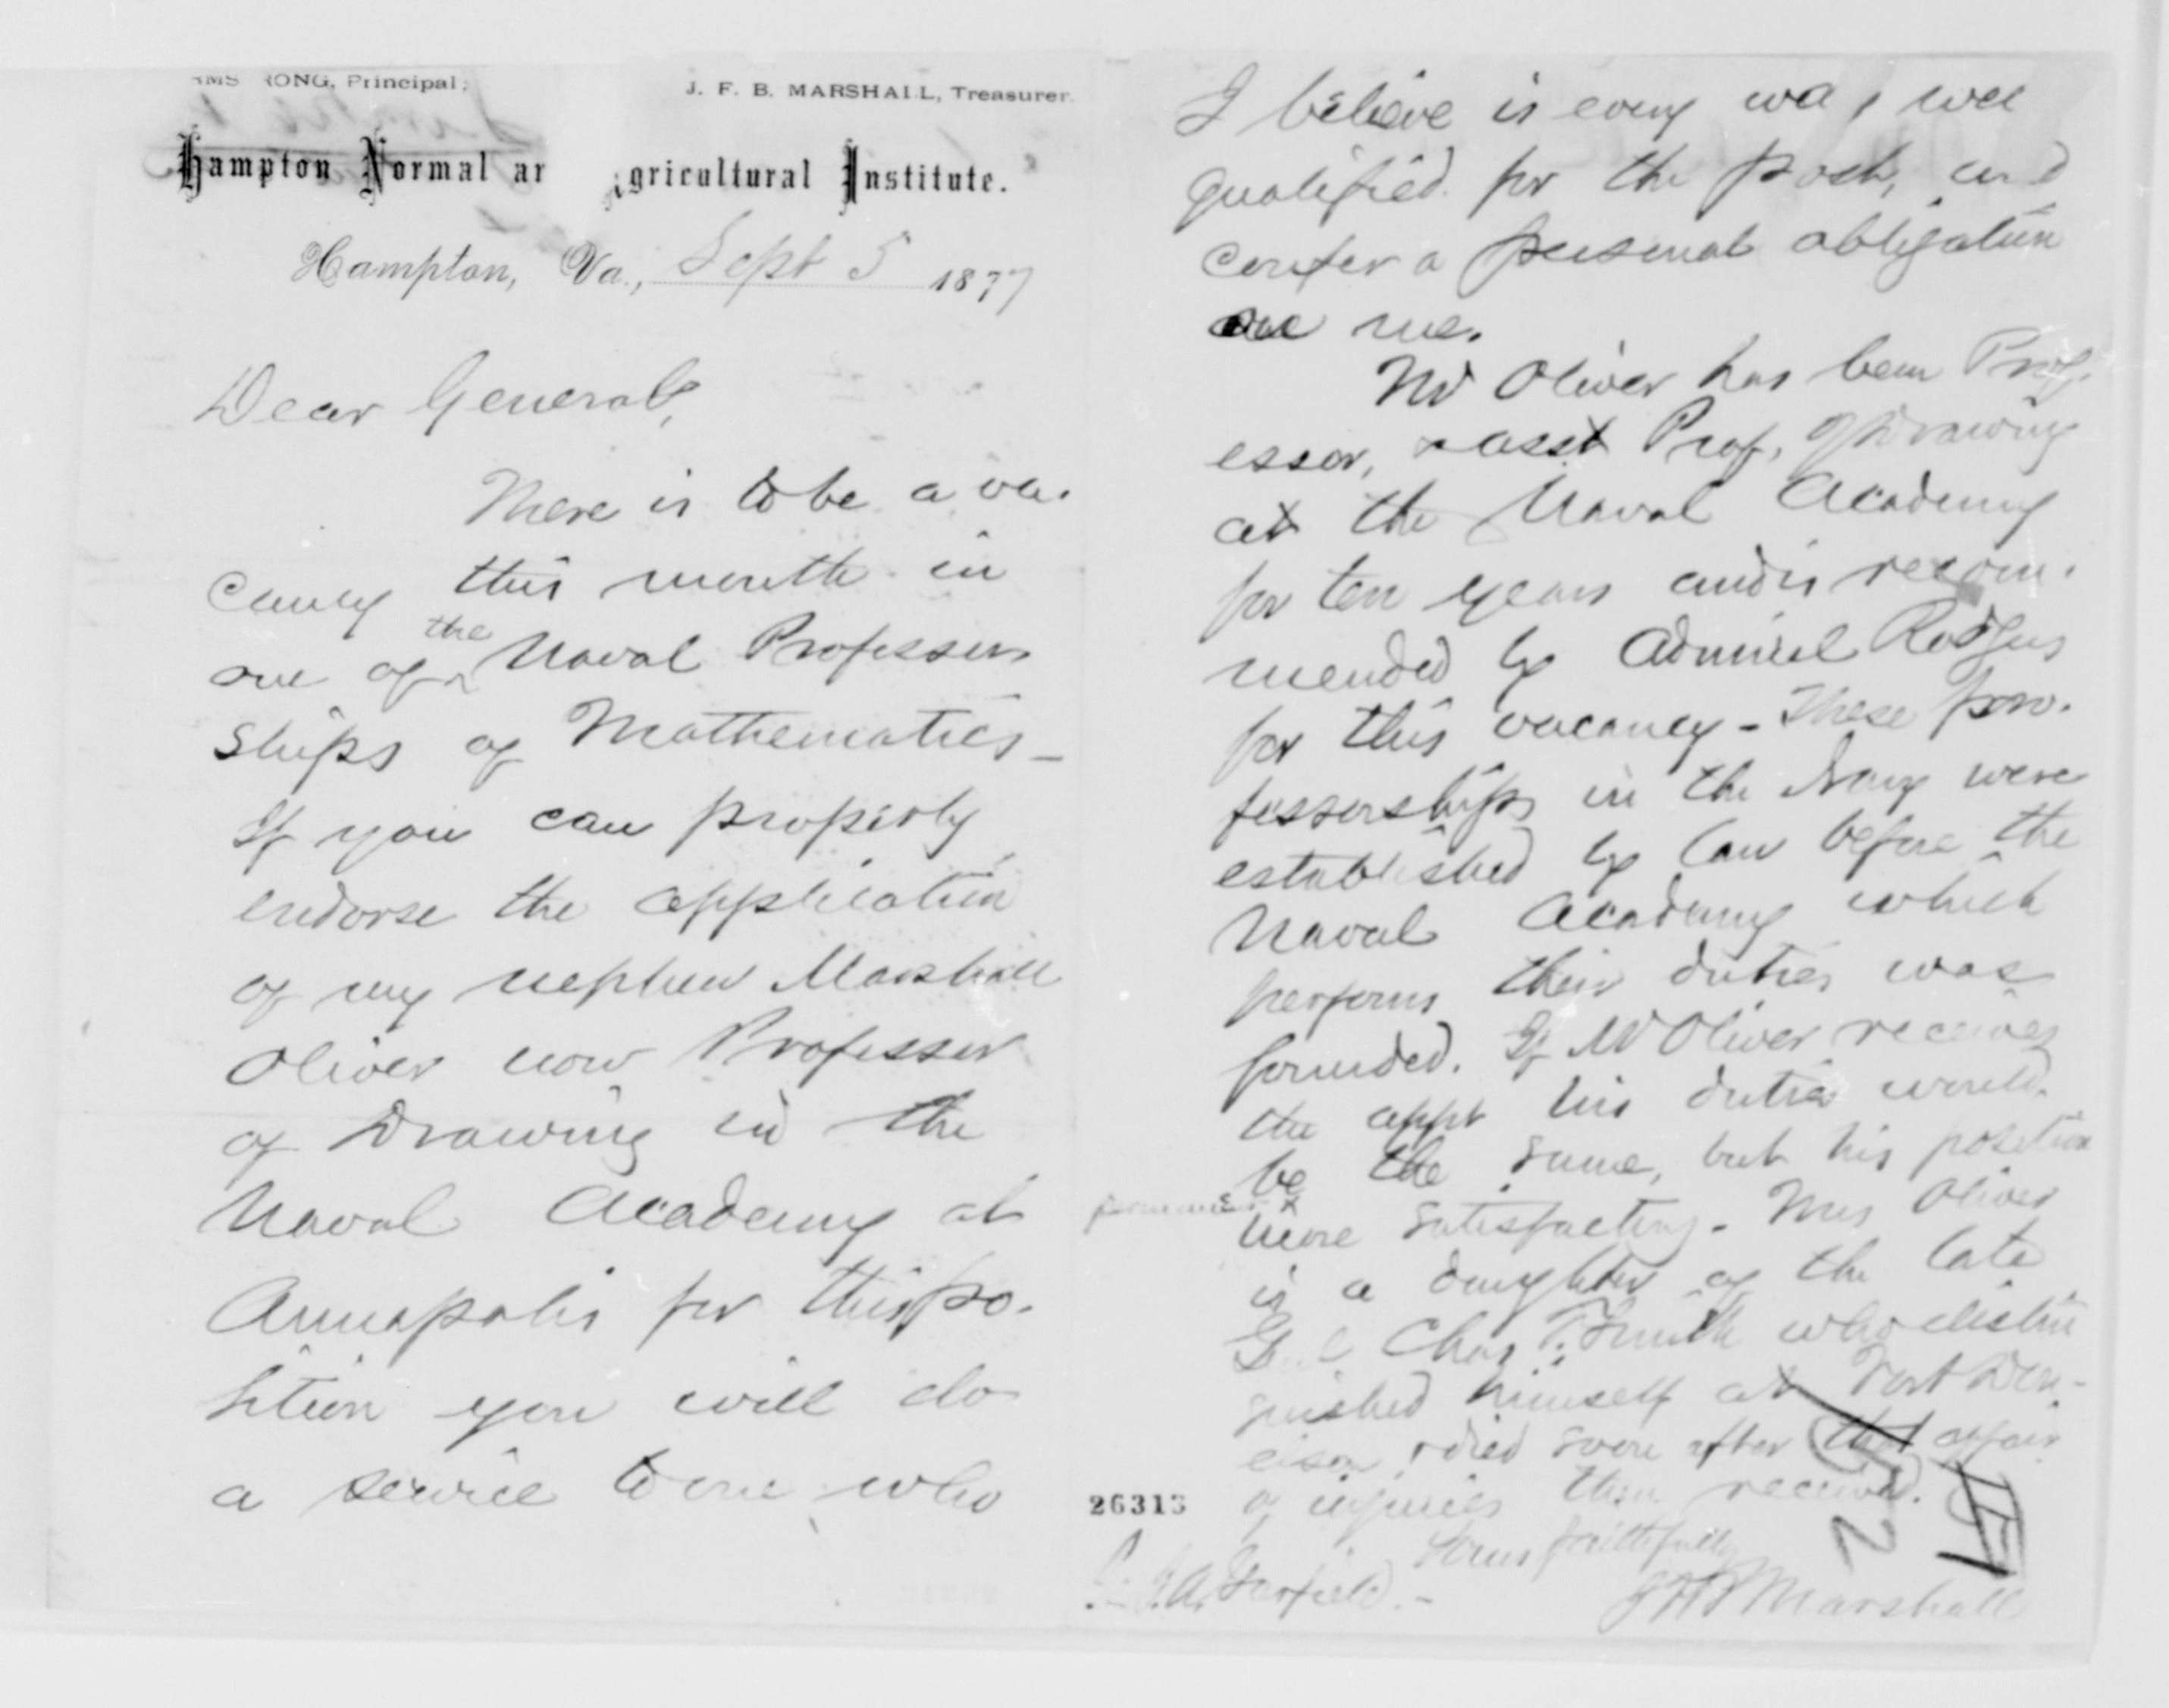 RONG, Principal;
J. F. B. MARSHALL, Treasurer.
Hampton Normal an Agricultural Institute.
Hampton, Va., Sept 5 1877
Dear General,
There is to be a va-
cancy this month in
one of the Naval Professor
ships of Mathematics -
If you can properly
endorse the application
of my nephew Marshall
Oliver now Professor
of Drawing in the
Naval Academy at
Annapolis for this po-
sition you will do
a service to one who
I believe is every way well
qualified for the post, and
confer a personal obligation
on me.
Mr Oliver has been Prof-
essor, & asst Prof. of Drawing
at the Naval Academy
for ten years and is recom-
mended by Admiral Rodgers
for this vacancy - These pro-
fessorships in the Navy were
established by law before the
Naval Academy which
performs their duties was
founded. If Mr Oliver receives
the appt his duties would
be the same, but his position
permanent &
more satisfactory. Mrs Oliver
is a daughter of the late
Genl Chas F. Smith who distin
guished himself at Fort Don-
elson & died soon after that affair
of injuries then received.
Yours faithfully
J F B Marshall
Genl J. A. Garfield. -
26313
2